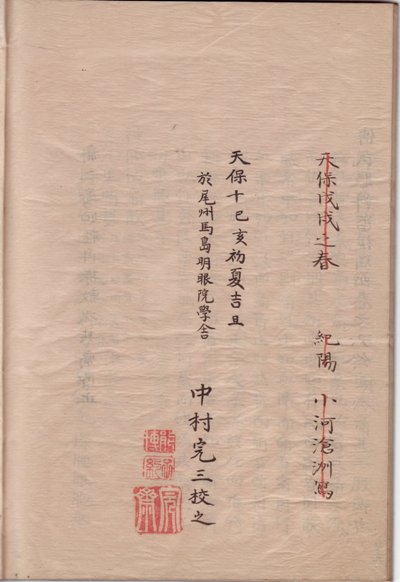 天保戊戌之春　紀陽　小河滄洲寫
天保十己亥初夏吉旦
於尾州馬島明眼院學舎
中村完三校之